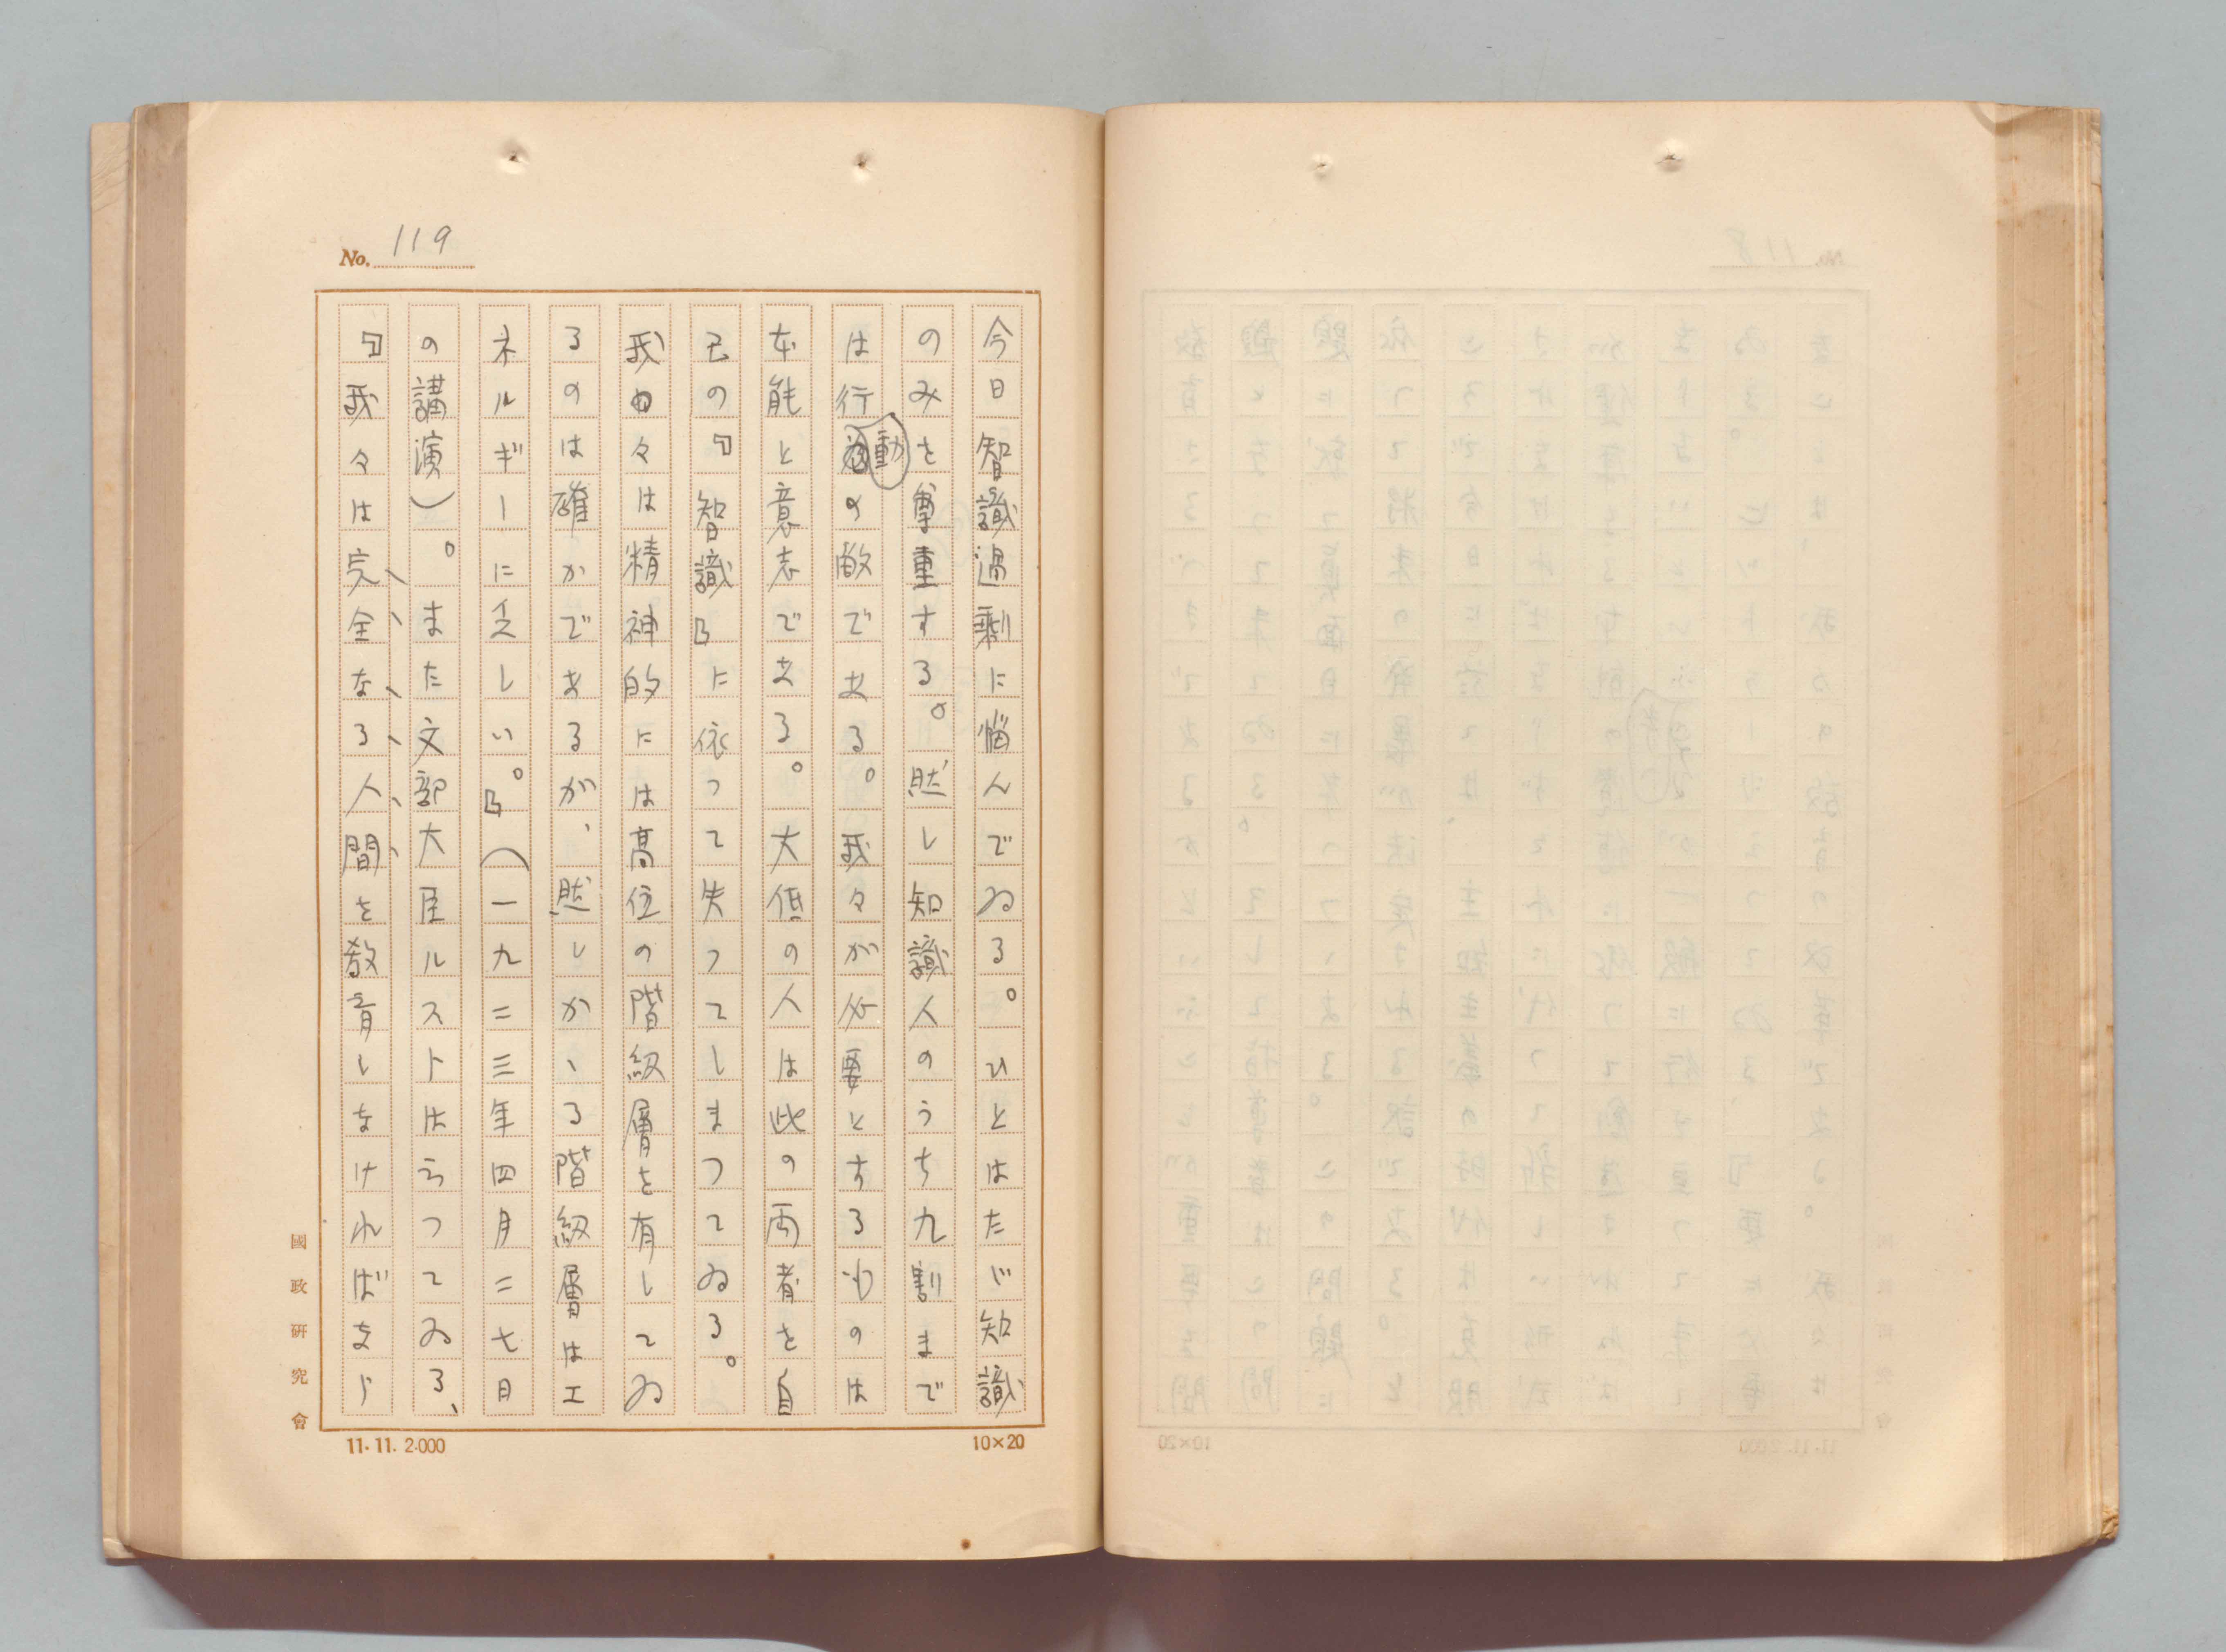 No. 119
今日智識過剰に悩んでゐる。ひとはたじ知識
のみを尊重する。然し知識人のうち九割まで
は行動の敵である。我々が必要とするものは
本能と意志である。大低の人は此の両者を自
己の『智識』に依つて失つてしまつてゐる。
我々は精神的には高位の階級層を有してゐ
るのは確かであるが、然しかゝる階級層はエ
ネルギーに乏しい。』(一九二三年四月二七日
の講演)。また文部大臣ルストは云つてゐる、
『我々は完全なる人間を教育しなければなら
國政研究會
11.11. 2.000
10×20